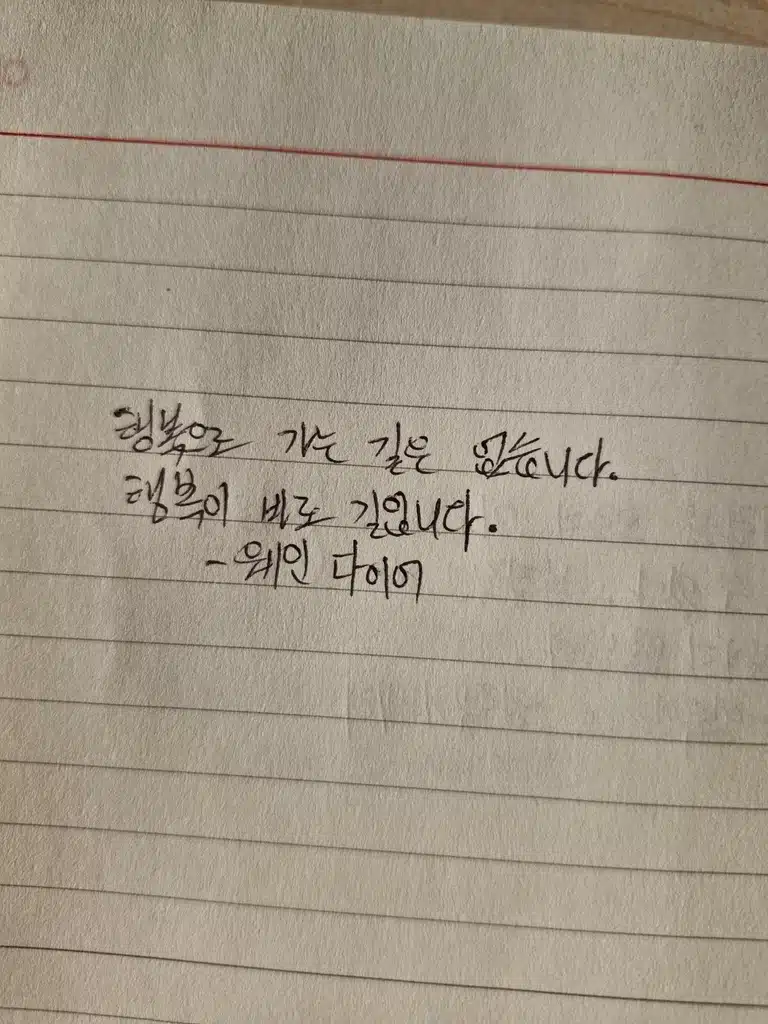 행복으로 가는 길은 없습니다.
행복이 바로 길입니다.
- 웨인 다이어